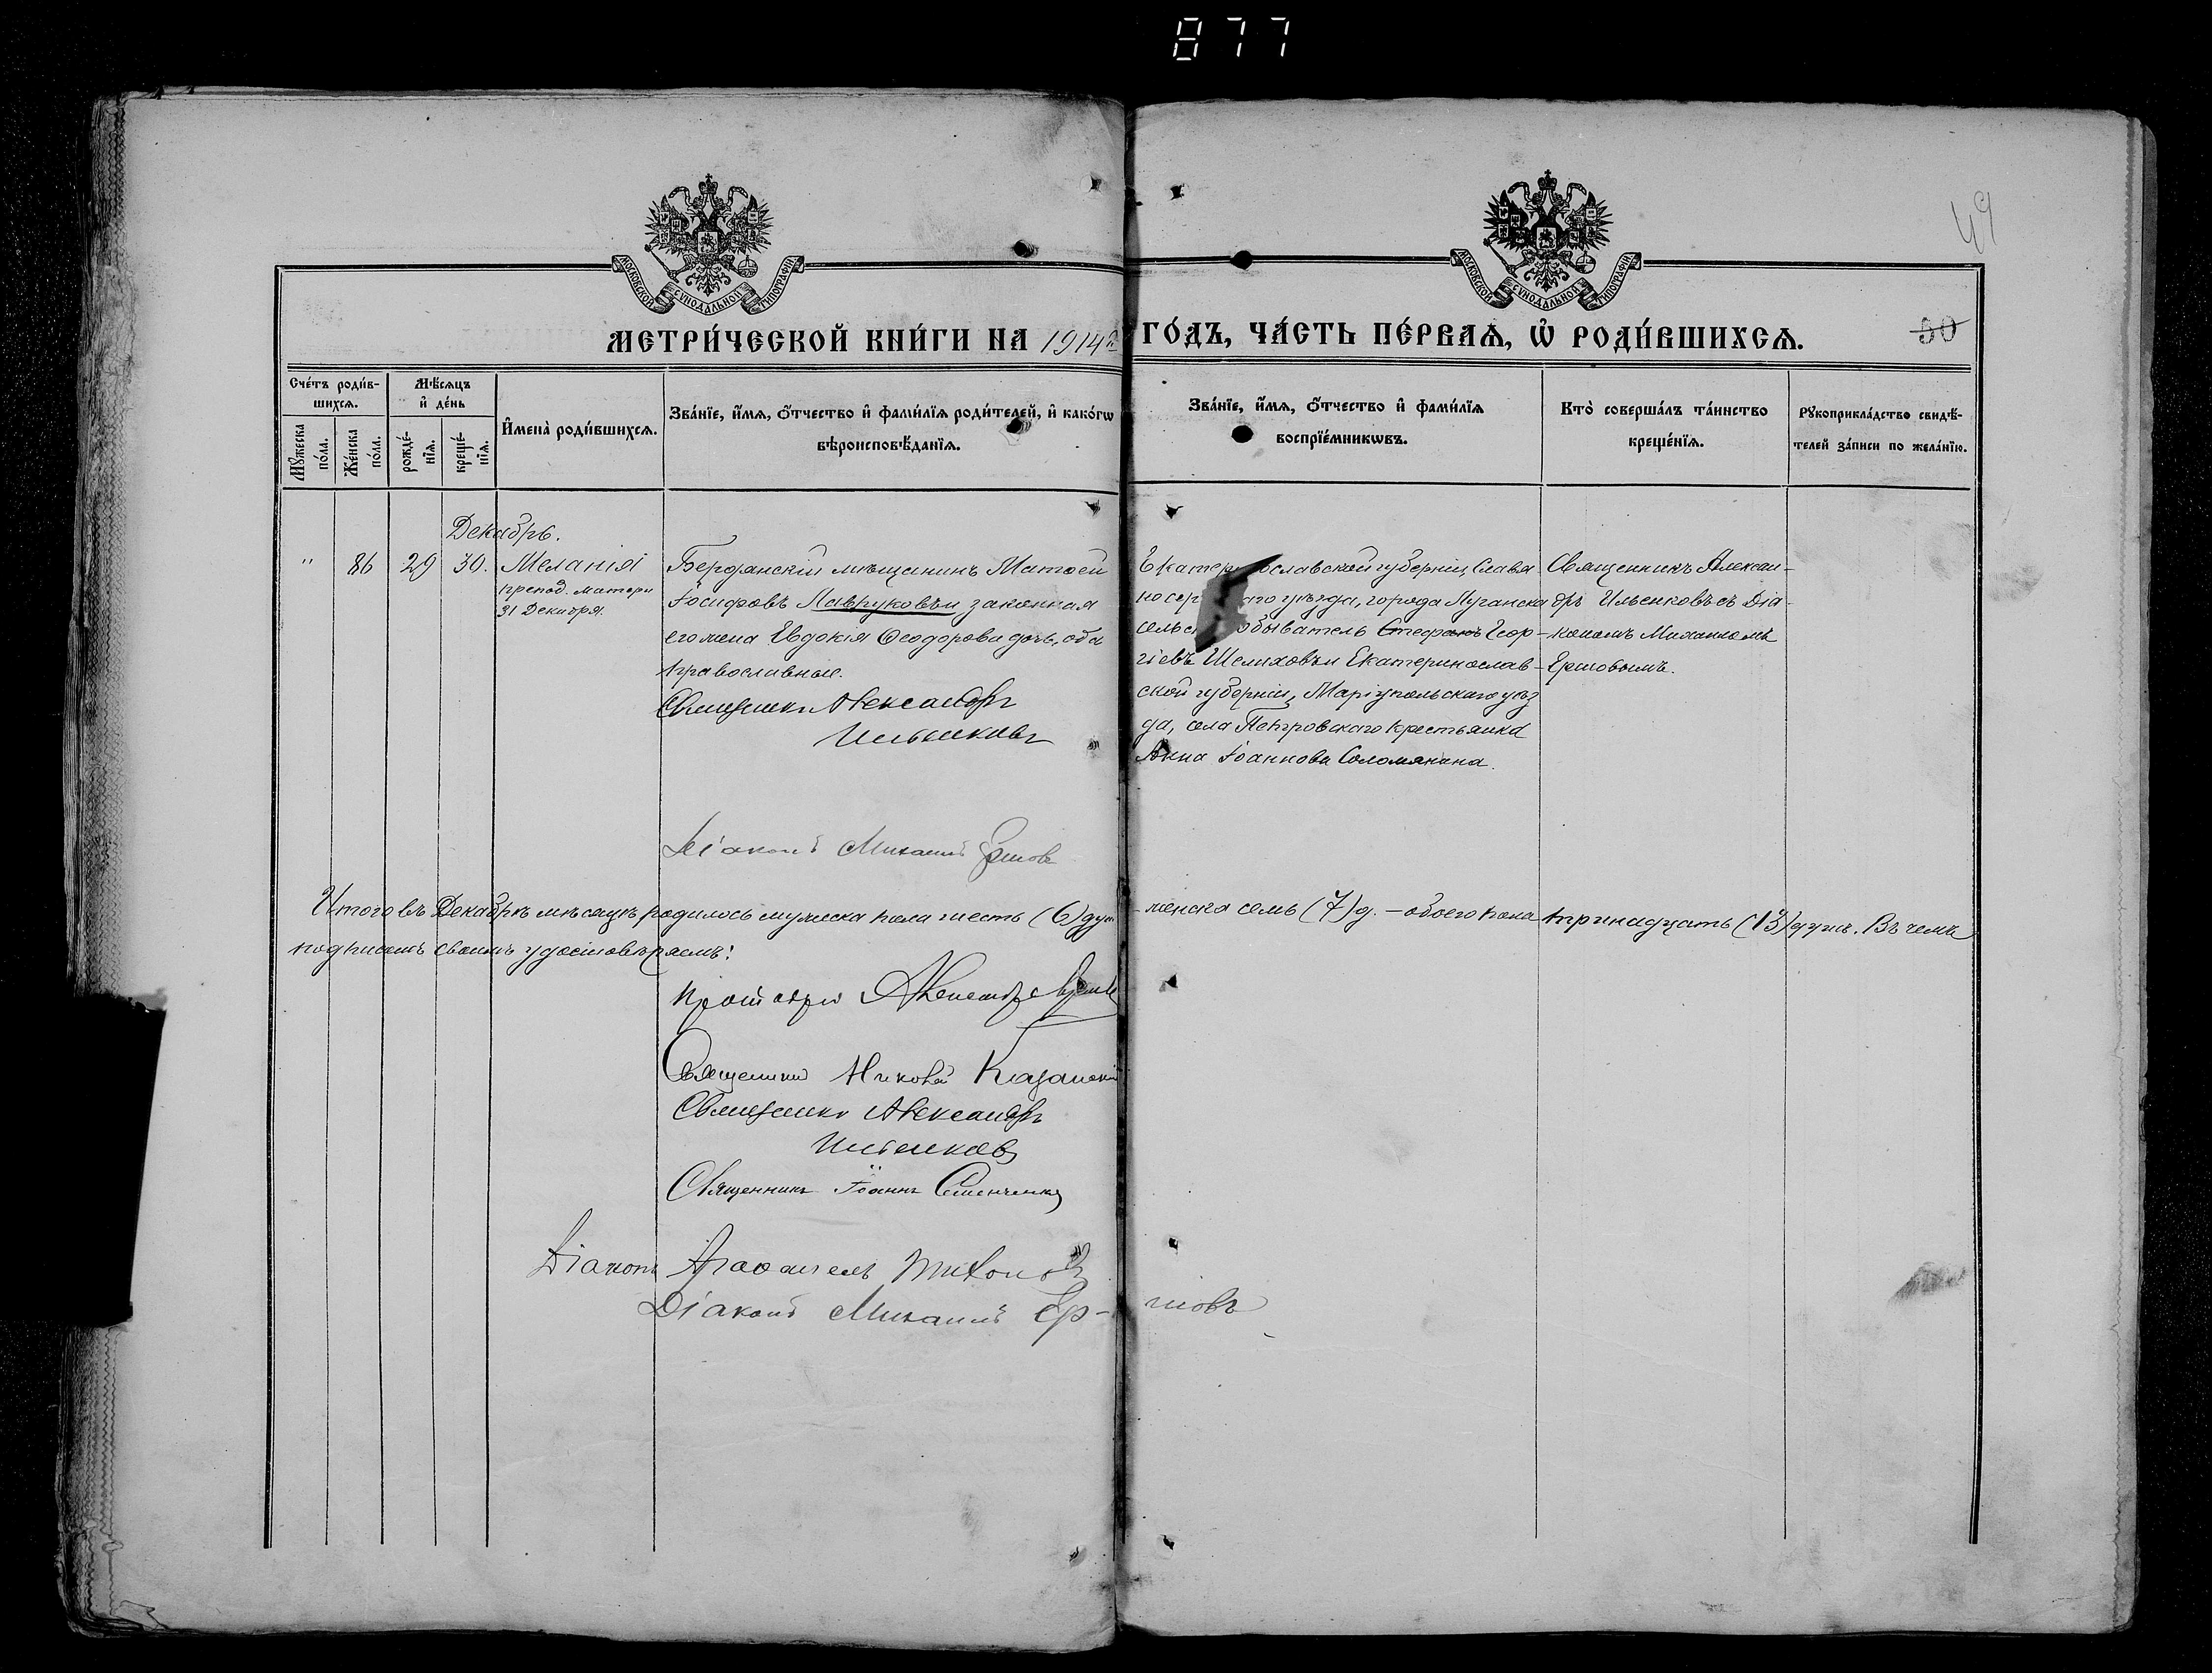 877
49
МОСКОВСКОЙ СѴНОДАЛЬНОЙ ТИПОГРАФІИ
МОСКОВСКОЙ СѴНОДАЛЬНОЙ ТИПОГРАФІИ
МЕТРИ́ЧЕСКОЙ КНИ́ГИ НА 1914 ГО́ДЪ, ЧА́СТЬ ПЕ́РВАѦ, Ѡ҆ РОДИ́ВШИХСѦ.
50
Сче́тъ роди́в-
шихсѧ.
Мꙋ́жеска по́ла.
Же́нска по́ла.
Мѣ́сѧцъ
и҆ де́нь
рожде́-
нїѧ.
креще́-
нїѧ.
И҆мена̀ роди́вшихсѧ.
Зва́нїе, и҆́мѧ, ѻ҆́тчество и҆ фами́лїѧ роди́телей, и҆ како́гѡ
вѣроисповѣ́данїѧ.
Зва́нїе, и҆́мѧ, ѻ҆́тчество и҆ фами́лїѧ
воспрїе́мникѡвъ.
Кто̀ соверша́лъ та́инство
креще́нїѧ.
Рꙋкоприкла́дство свидѣ́-
телей за́писи по жела́нїю.
Декабрь.
" 86 29 30. Меланія
препод. матери
31 Декабря.
Бердянскій мѣщанинъ Матѳей
Іосифовъ Лавруковъ и законная
его жена Евдокія Ѳеодорова дочь, оба
православные.
Священникъ Александръ
Ильенковъ
Діаконъ Михаилъ Ершовъ
Екатеринославской губерніи, Славя
носербскаго уѣзда, города Луганска
сельскій обыватель Стефанъ Геор-
гіевъ Шелиховъ и Екатеринослав-
ской губерніи, Маріупольскаго уѣз
да, села Петровскаго крестьянка
Анна Іоаннова Соломянана.
Священникъ Алексан-
дръ Ильенковъ съ Діа-
кономъ Михаиломъ
Ершовымъ.
Итого въ Декабрѣ мѣсяцѣ родилось мужеска пола шесть (6) душ - женска семь (7) д. - обоего пола тринадцать (13) душъ. Въ чемъ
подписомъ своимъ удостовѣряемъ:
Священникъ Николай Казанскій
Священникъ Александръ
Ильенковъ
Священникъ Іоаннъ Семенченко
Діаконъ Тихоновъ
Діаконъ Михаилъ Ер- шовъ